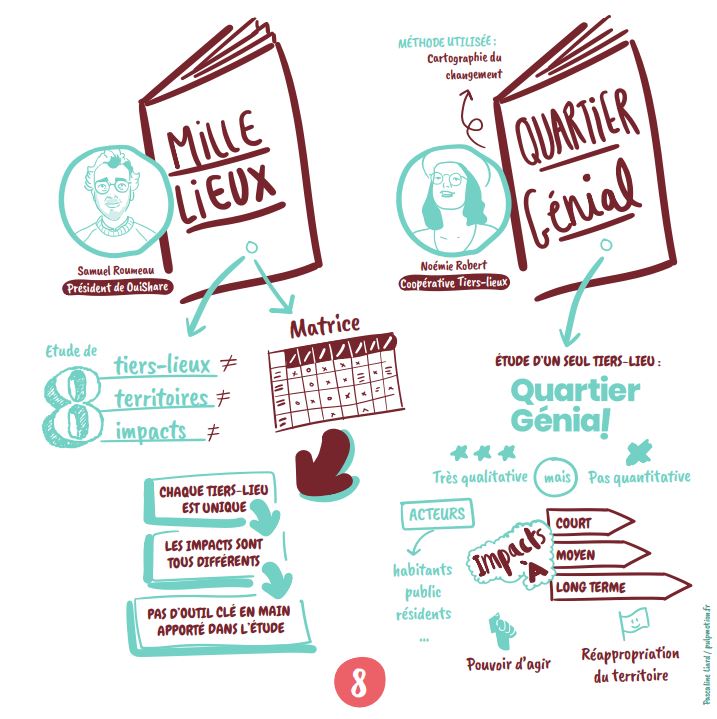 MiLLE
LiEUX
Samuel Roumeau
Président de OuiShare
Etude de
8
tiers-lieux ≠
territoires ≠
impacts ≠
Matrice
CHAQUE TIERS-LIEU
EST UNIQUE
LES IMPACTS SONT
TOUS DIFFÉRENTS
PAS D'OUTIL CLÉ EN MAIN
APPORTÉ DANS L'ÉTUDE
MÉTHODE UTILISÉE :
Cartographie du
changement
QUARTiER
Génial
Noémie Robert
Coopérative Tiers-lieux
ÉTUDE D'UN SEUL TIERS-LIEU :
Quartier
Génial!
Très qualitative mais Pas quantitative
ACTEURS
habitants
public
résidents
...
Impacts
À
COURT
MOYEN
LONG TERME
Pouvoir d'agir
Réappropriation
du territoire
8
Pascaline Liard / pulpmotion.fr